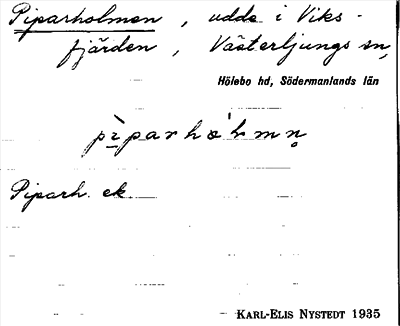 Piparholmen, udde i Viks-
fjärden, Västerljungs sn,
Hölebo hd, Södermanlands län
pi̠̇̀parhó̀lmn̥
Piparh. ek.
KARL-ELIS NYSTEDT 1935